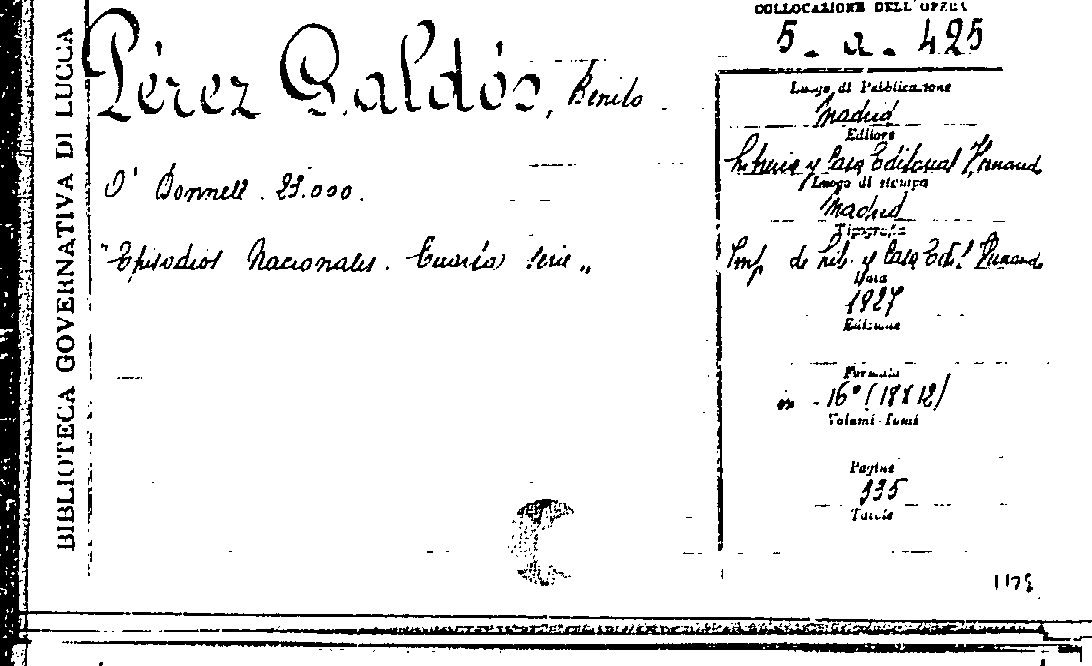 BIBLIOTECA GOVERNATIVA DI LUCCA
COLLOCAZIONE DELL'OPERA
5. a. 425
Pérez Galdós, Benito.
O' Donnell. 23.000.
"Episodios Nacionales. Cuarta serie"
Luogo di Pubblicazione
Madrid
Editore
Librería y Casa Editorial Hernando
Luogo di stampa
Madrid
Tipografia
Imp. de Lib. y Casa Edit. Hernando
Data
1927
Edizione
Formato
in - 16° (18 x 12)
Volumi - Tomi
Pagine
335
Tavole